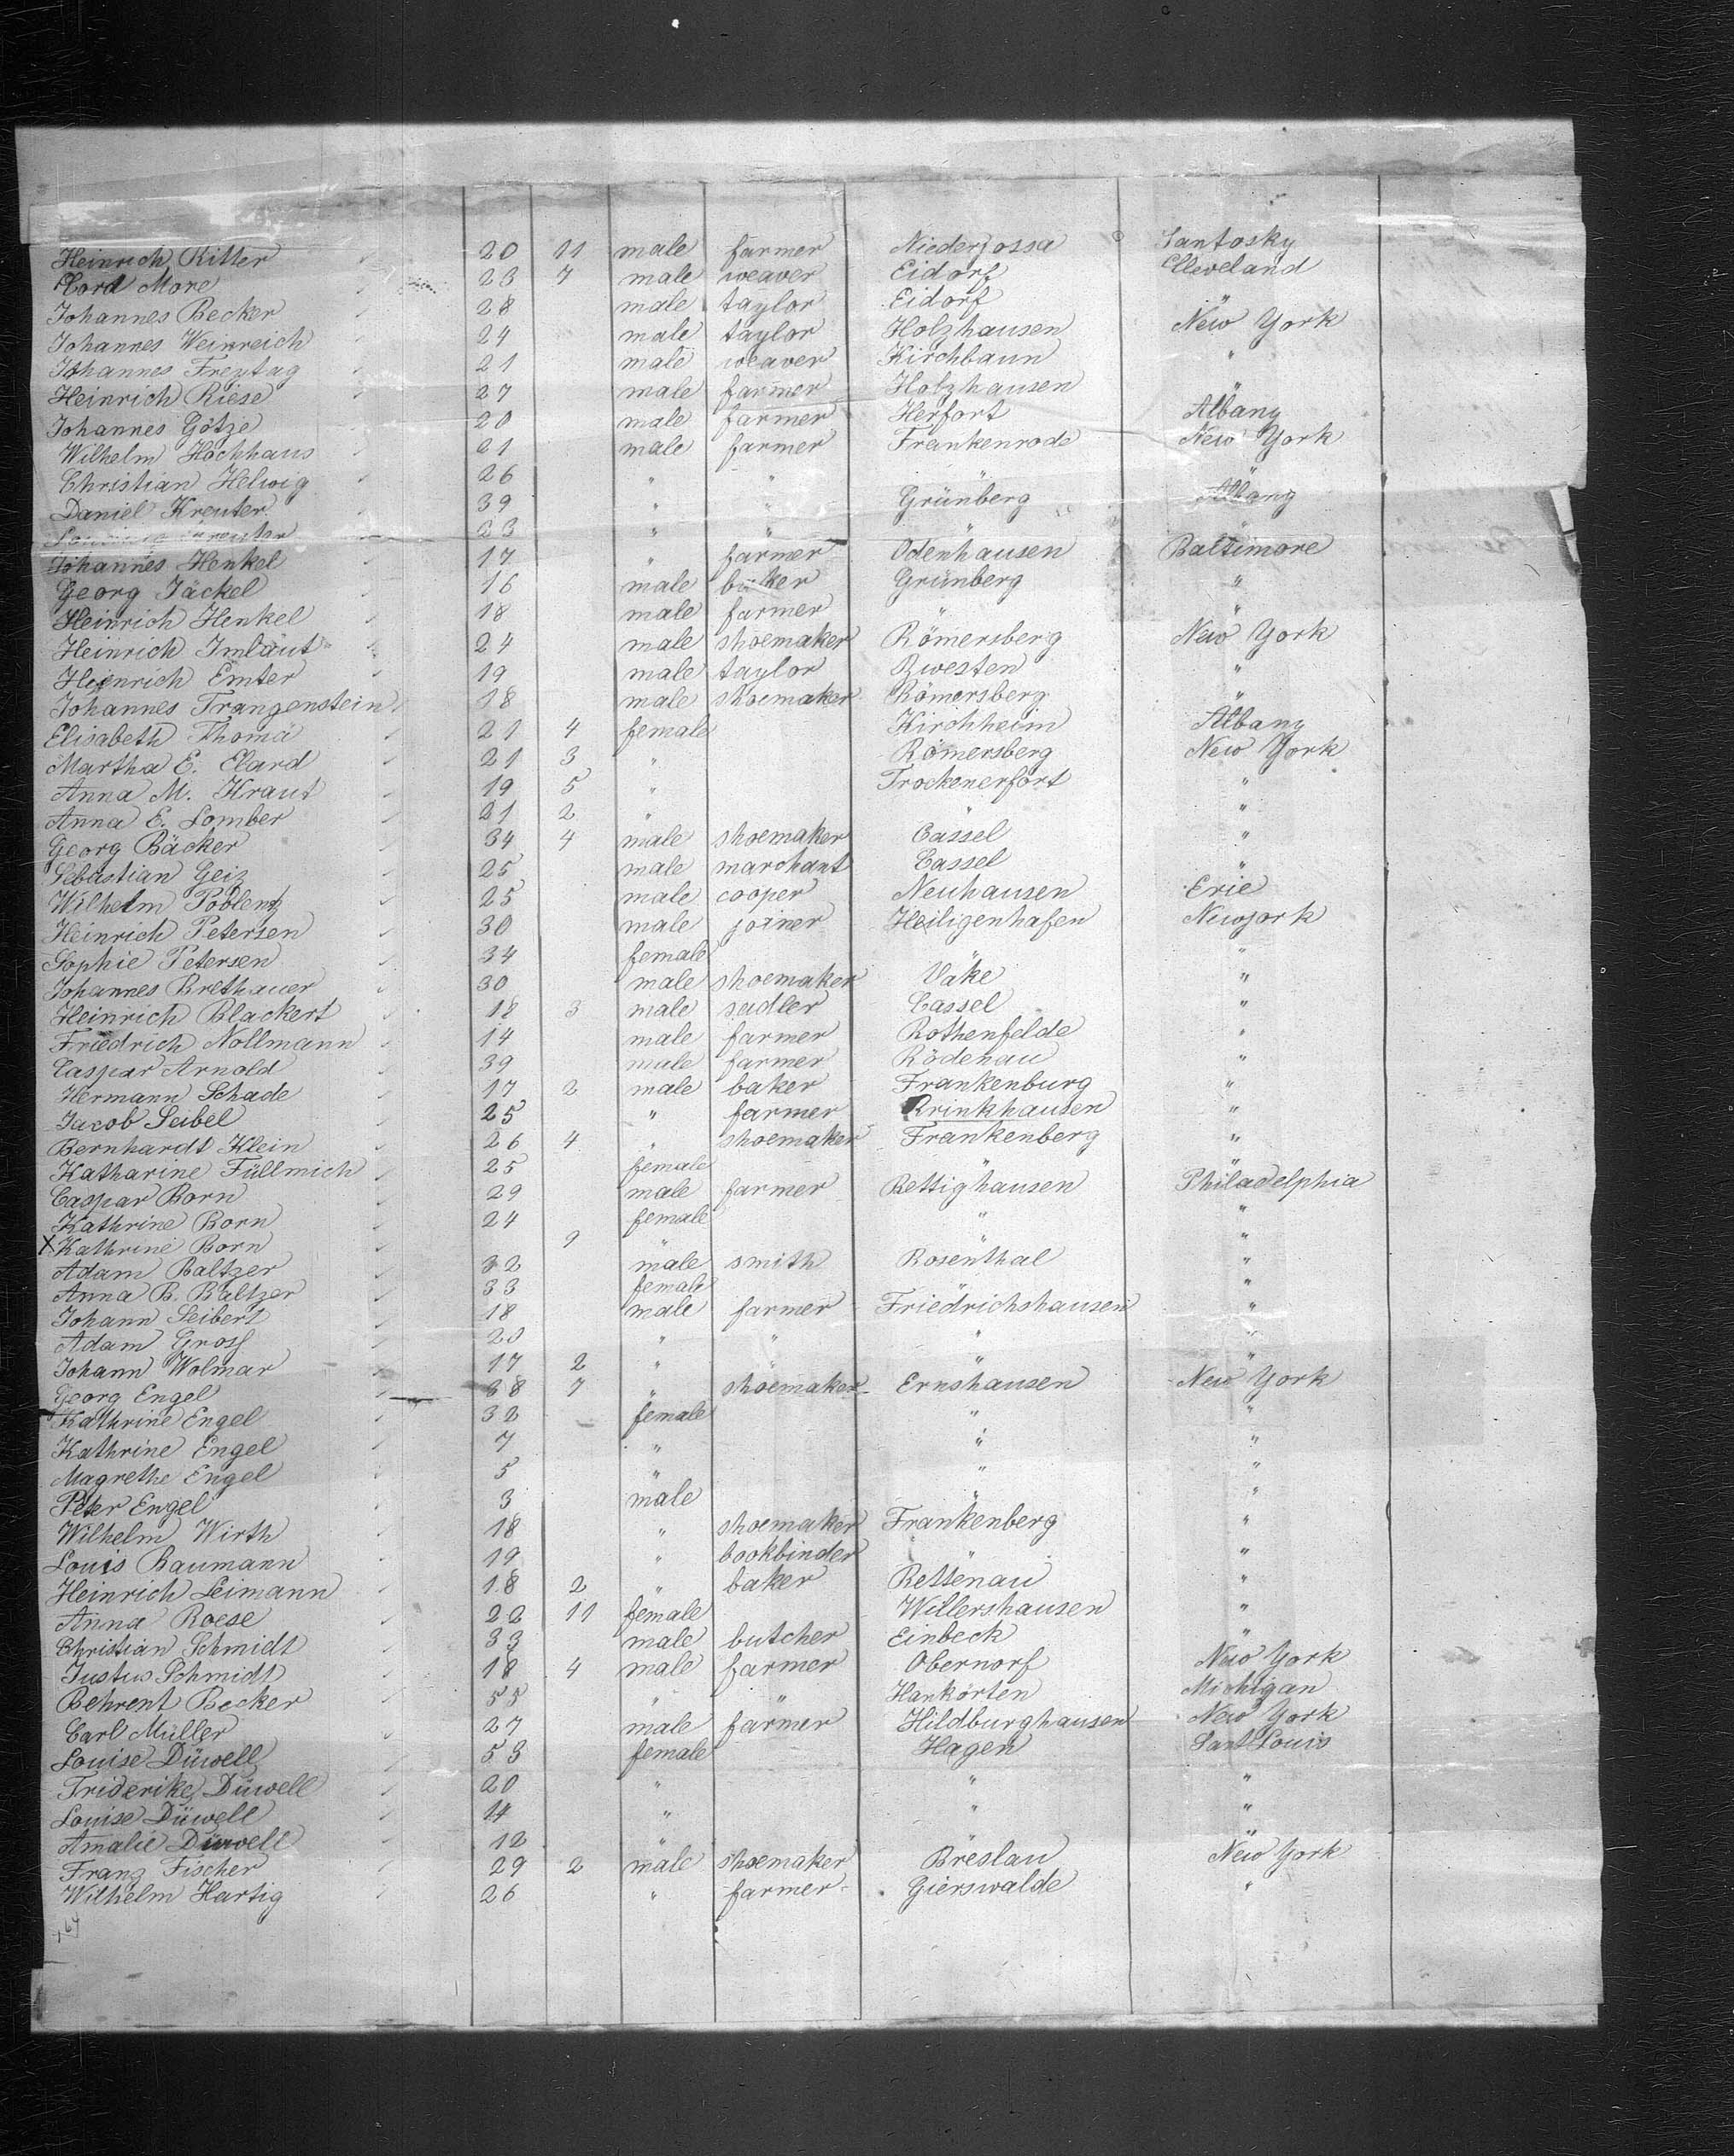 Heinrich Ritter 20 11 male farmer Niederjossa Santosky
Cord More 23 7 male weaver Eidorf Cleveland
Johannes Becker 28 male taylor Eidorf "
Johannes Weinreich 24 male taylor Holzhausen New York
Johannes Freytag 21 male weaver Kirchbaun "
Heinrich Riese 27 male farmer Holzhausen "
Johannes Götze 20 male farmer Herfort Albany
Wilhelm Hochhaus 21 male farmer Frankenrode New York
Christian Helwig 26 " " " "
Daniel Kreuter 39 " " Grünberg Albany
Kreuter 23 " " " "
Johannes Henkel 17 " farmer Odenhausen Baltimore
Georg Jäckel 16 male baker Grünberg "
Heinrich Henkel 18 male farmer " "
Heinrich Imläut 24 male shoemaker Römersberg New York
Heinrich Emter 19 male taylor Zwesten "
Johannes Trangenstein 18 male shoemaker Römersberg "
Elisabeth Thomä 21 4 female Kirchheim Albany
Martha E. Elard 21 3 " Römersberg New York
Anna M. Kraut 19 5 " Trockenerfort "
Anna E. Lomber 21 2 " " "
Georg Bäcker 34 4 male shoemaker Cassel "
Sebastian Geiz 25 male marchant Cassel "
Wilhelm Poblentz 25 male cooper Neuhausen Erie
Heinrich Petersen 30 male joiner Heiligenhafen Newyork
Sophie Petersen 34 female "
Johannes Brethauer 30 male shoemaker Väke "
Heinrich Blackert 18 3 male sadler Cassel "
Friedrich Nollmann 14 male farmer Rothenfelde "
Caspar Arnold 39 male farmer Rödenau "
Hermann Schade 17 2 male baker Frankenburg "
Jacob Seibel 25 " farmer Brinkhausen "
Bernhardt Klein 26 4 " shoemaker Frankenberg "
Katharine Füllmich 25 female " "
Caspar Born 29 male farmer Bettighausen Philadelphia
Kathrine Born 24 female " "
X Kathrine Born 9 " " "
Adam Baltzer 32 male smith Rosenthal "
Anna B. Baltzer 33 female " "
Johann Seibert 18 male farmer Friedrichshausen "
Adam Gross 20 " " " "
Johann Wolmar 17 2 " " " "
Georg Engel 38 7 " shoemaker Ernshausen New York
Kathrine Engel 32 female " "
Kathrine Engel 7 " " "
Magrethe Engel 5 " " "
Peter Engel 3 male " "
Wilhelm Wirth 18 " shoemaker Frankenberg "
Louis Baumann 19 " bookbinder " "
Heinrich Leimann 18 2 " baker Rettenau "
Anna Roese 22 11 female Willershausen "
Christian Schmidt 33 male butcher Einbeck "
Justus Schmidt 18 4 male farmer Obernorf New York
Behrent Becker 55 " " Hankörten Michigan
Carl Müller 27 male farmer Hildburghausen New York
Louise Düwell 53 female Hagen Sant Louis
Friderike Düwell 20 " " "
Louise Düwell 14 " " "
Amalie Düwell 12 " " "
Franz Fischer 29 2 male shoemaker Breslau New York
Wilhelm Hartig 26 " farmer Gierswalde "
164